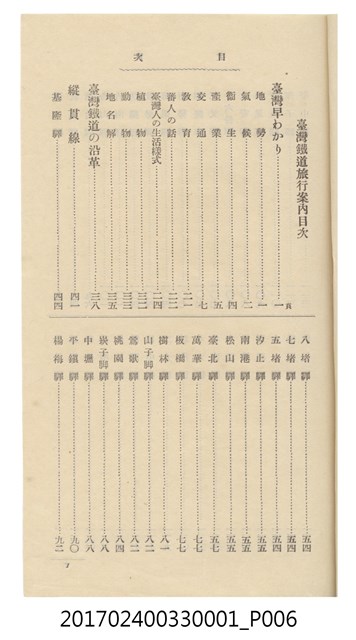 目次
臺灣鐵道旅行案內目次
頁
臺灣早わかり……一
地勢……一
氣候……二
衞生……四
產業……五
交通……七
敎育……一一
蕃人の話……二二
臺灣人の生活樣式……二四
植物……三二
動物……三三
地名解……三五
臺灣鐵道の沿革……三八
縱貫線……四一
基隆驛……四四
八堵驛……五四
七堵驛……五四
五堵驛……五四
汐止驛……五五
南港驛……五五
松山驛……五五
臺北驛……五七
萬華驛……七七
板橋驛……七七
樹林驛……八一
山子脚驛……八二
鶯歌驛……八二
桃園驛……八四
崁子脚驛……八八
中壢驛……八八
平鎭驛……九〇
楊梅驛……九二
201702400330001_P006